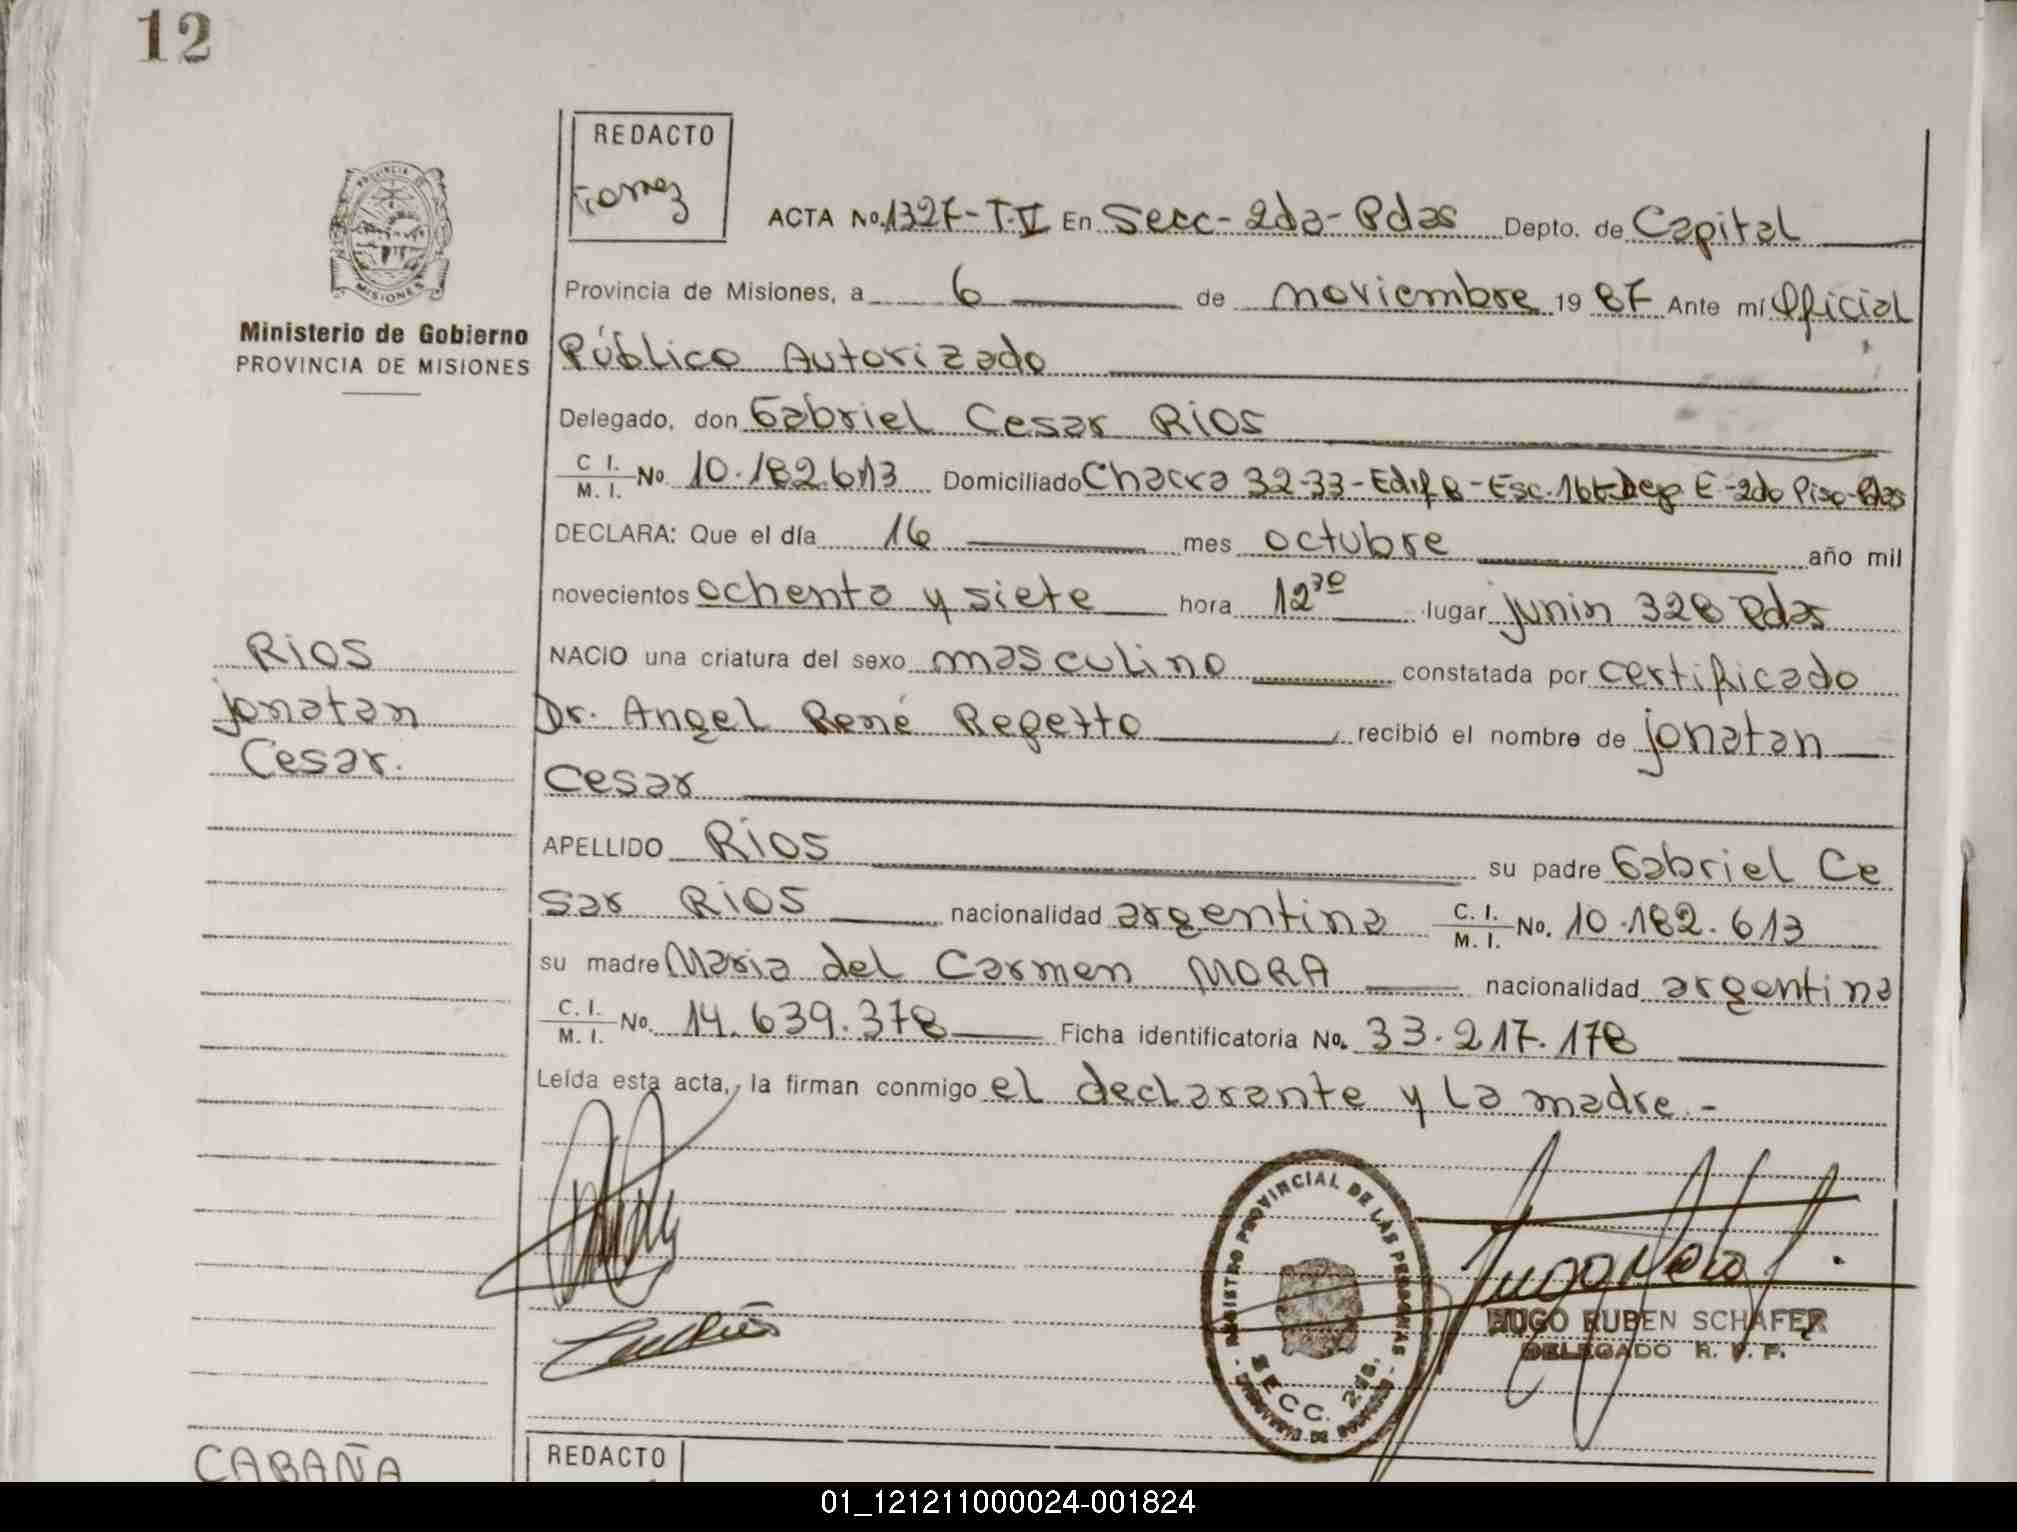 12
REDACTO
ACTA No. 1327-T-V En Secc-2da-Pdas Depto. de Capital
Provincia de Misiones, a 6 de noviembre 19 87 Ante mí Oficial
Público Autorizado
Delegado, don Gabriel Cesar Rios
C I. M. I. No. 10.182.613 Domiciliado Chacra 32-33-Edif B-Esc.16 Dep E-2do Piso-Pdas
DECLARA: Que el día 16 mes octubre año mil
novecientos ochenta y siete hora 12 30 lugar junin 328 Pdas
NACIO una criatura del sexo masculino constatada por certificado
Dr. Angel René Repetto recibió el nombre de jonatan
Cesar
APELLIDO Rios su padre Gabriel Ce
sar Rios nacionalidad argentina C. I. M. I. No. 10.182.613
su madre Maria del Carmen MORA nacionalidad argentina
C. I. M. I. No. 14.639.378 Ficha identificatoria No. 33.217.178
Leída esta acta, la firman conmigo el declarante y la madre.-
PROVINCIA DE
MISIONES
Ministerio de Gobierno
PROVINCIA DE MISIONES
Rios
jonatan
Cesar.
REGISTRO PROVINCIAL DE LAS PERSONAS
SECC. 2da.
HUGO RUBEN SCHAFER
DELEGADO R. P. P.
CABAÑA
REDACTO
01_121211000024-001824